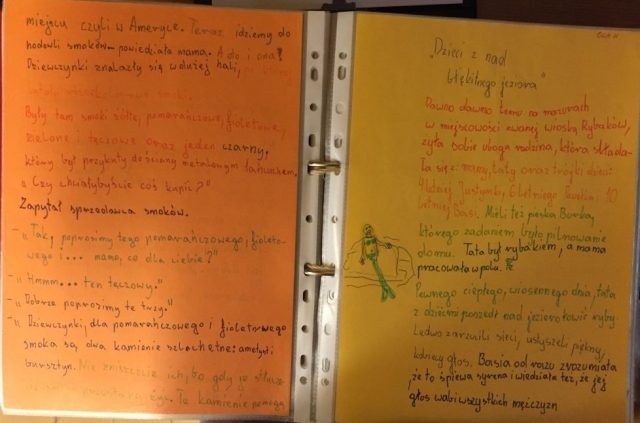 miejscu czyli w Ameryce. Teraz idziemy do
hodowli smoków - powiedziała mama. A oto i ona!
Dziewczynki znalazły się w dużej hali, po której
latały smoki.
Były tam smoki żółte, pomarańczowe, fioletowe,
zielone i tęczowe oraz jeden czarny,
który był przykuty do ściany metalowym łańcuchem.
„Czy chciałybyście coś kupić?"
Zapytał sprzedawca smoków.
-„Tak, poprosimy tego pomarańczowego, fioleto-
wego i... mamo, co dla ciebie?"
-„Hmmm... ten tęczowy."
-„Dobrze poprosimy te trzy."
-„Dziewczynki, dla pomarańczowego i fioletowego
smoka są dwa kamienie szlachetne: ametyst i
bursztyn. Nie zniszczcie ich, bo gdy je
żyć. Te kamienie pomogą
„Dzieci z nad
błękitnego jeziora"
Dawno dawno temu na mazurach
w miejscowości zwanej wioską Rybaków,
żyła sobie uboga rodzina, która składa-
ła się z: mamy, taty oraz trójki dzieci:
4letniej Justynki, 6letniego 10
letniej Basi. Mieli też pieska Burka,
którego zadaniem było pilnowanie
domu. Tata był rybakiem, a mama
pracowała w polu. Te
Pewnego ciepłego, wiosennego dnia, tata
z dziećmi poszedł nad jezioro łowić ryby.
Ledwo zarzucili sieci, usłyszeli piękny,
kobiecy głos. Basia od razu zrozumiała
,że to śpiewa syrena i wiedziała też, że jej
głos wabi wszystkich mężczyzn